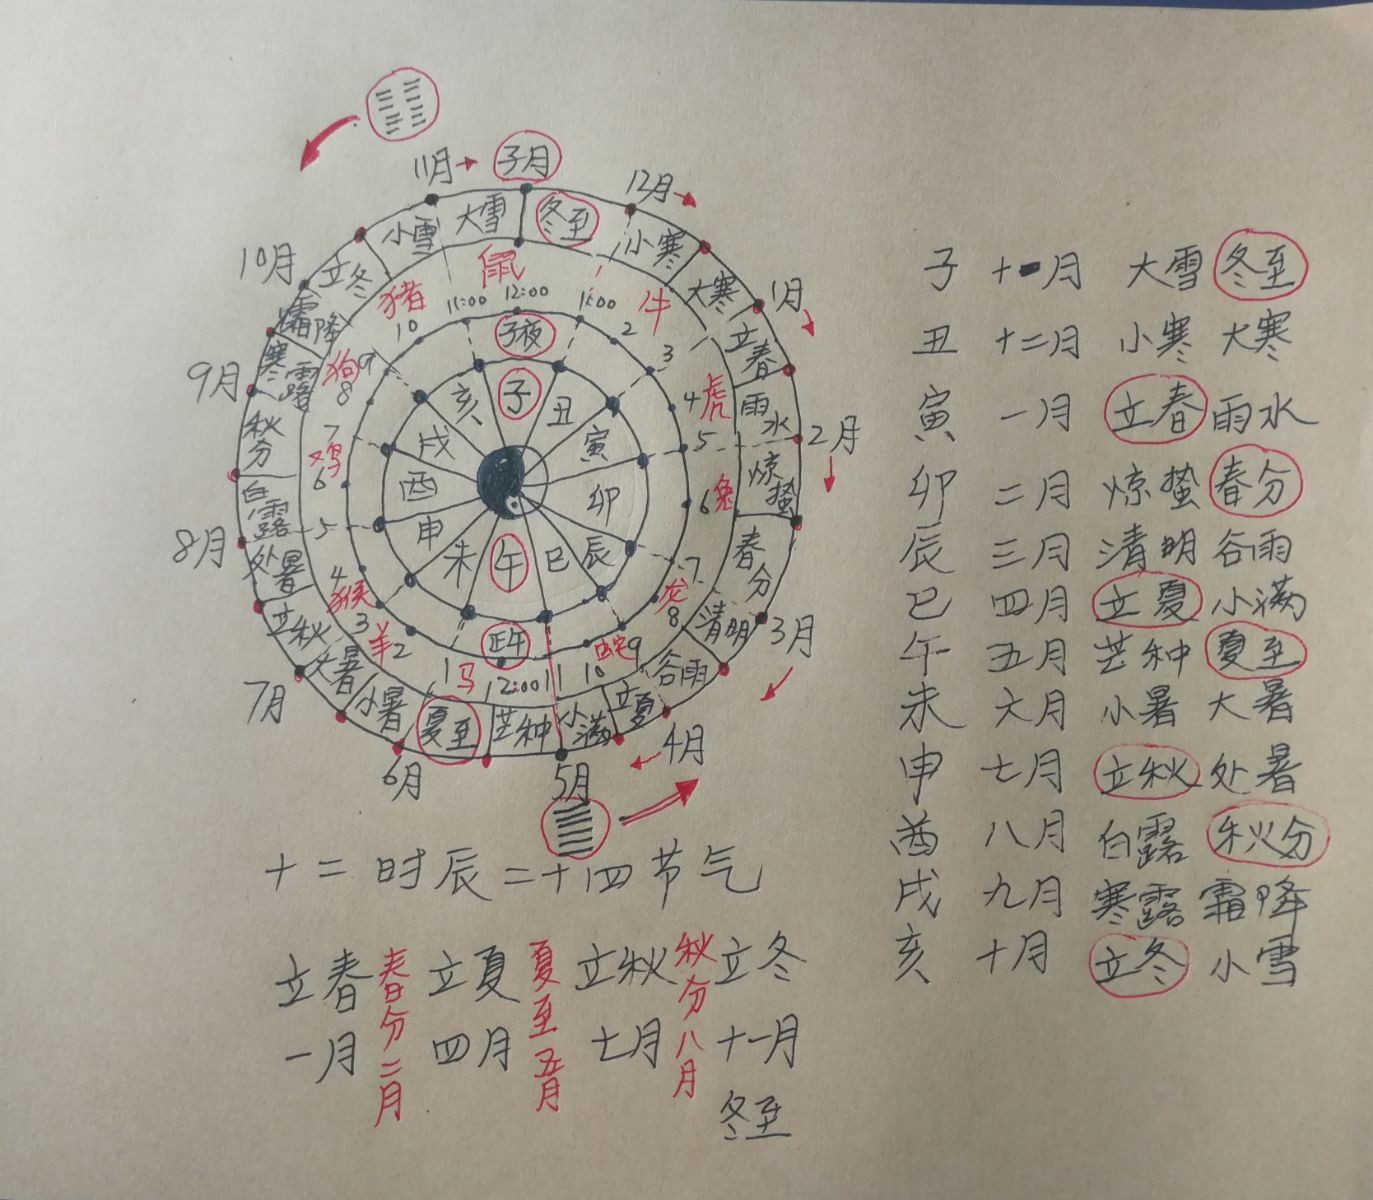 11月 子月 12月
小雪 大雪 冬至 小寒
10月 立冬 大寒 1月
猪 鼠 牛
11:00 12:00 1:00
霜降 10 子夜 2 立春
9月 寒露 狗 9 8 3 4 虎 雨水 2月
亥 子 丑
秋分 鸡 7 6 戌 寅 5 惊蛰
酉 卯 6 兔
白露 5 申 未 午 巳 辰 7 龙 春分
8月 处暑 4 猴 8 清明 3月
立秋 3 羊 2 正午 蛇 9 谷雨
大暑 1 马 12:00 11 10 立夏
7月 小暑 夏至 芒种 小满 4月
6月 5月
十二时辰二十四节气
立春 春分二月 立夏 夏至五月 立秋 秋分八月 立冬
一月 四月 七月 十一月
冬至
子 十一月 大雪 冬至
丑 十二月 小寒 大寒
寅 一月 立春 雨水
卯 二月 惊蛰 春分
辰 三月 清明 谷雨
巳 四月 立夏 小满
午 五月 芒种 夏至
未 六月 小暑 大暑
申 七月 立秋 处暑
酉 八月 白露 秋分
戌 九月 寒露 霜降
亥 十月 立冬 小雪